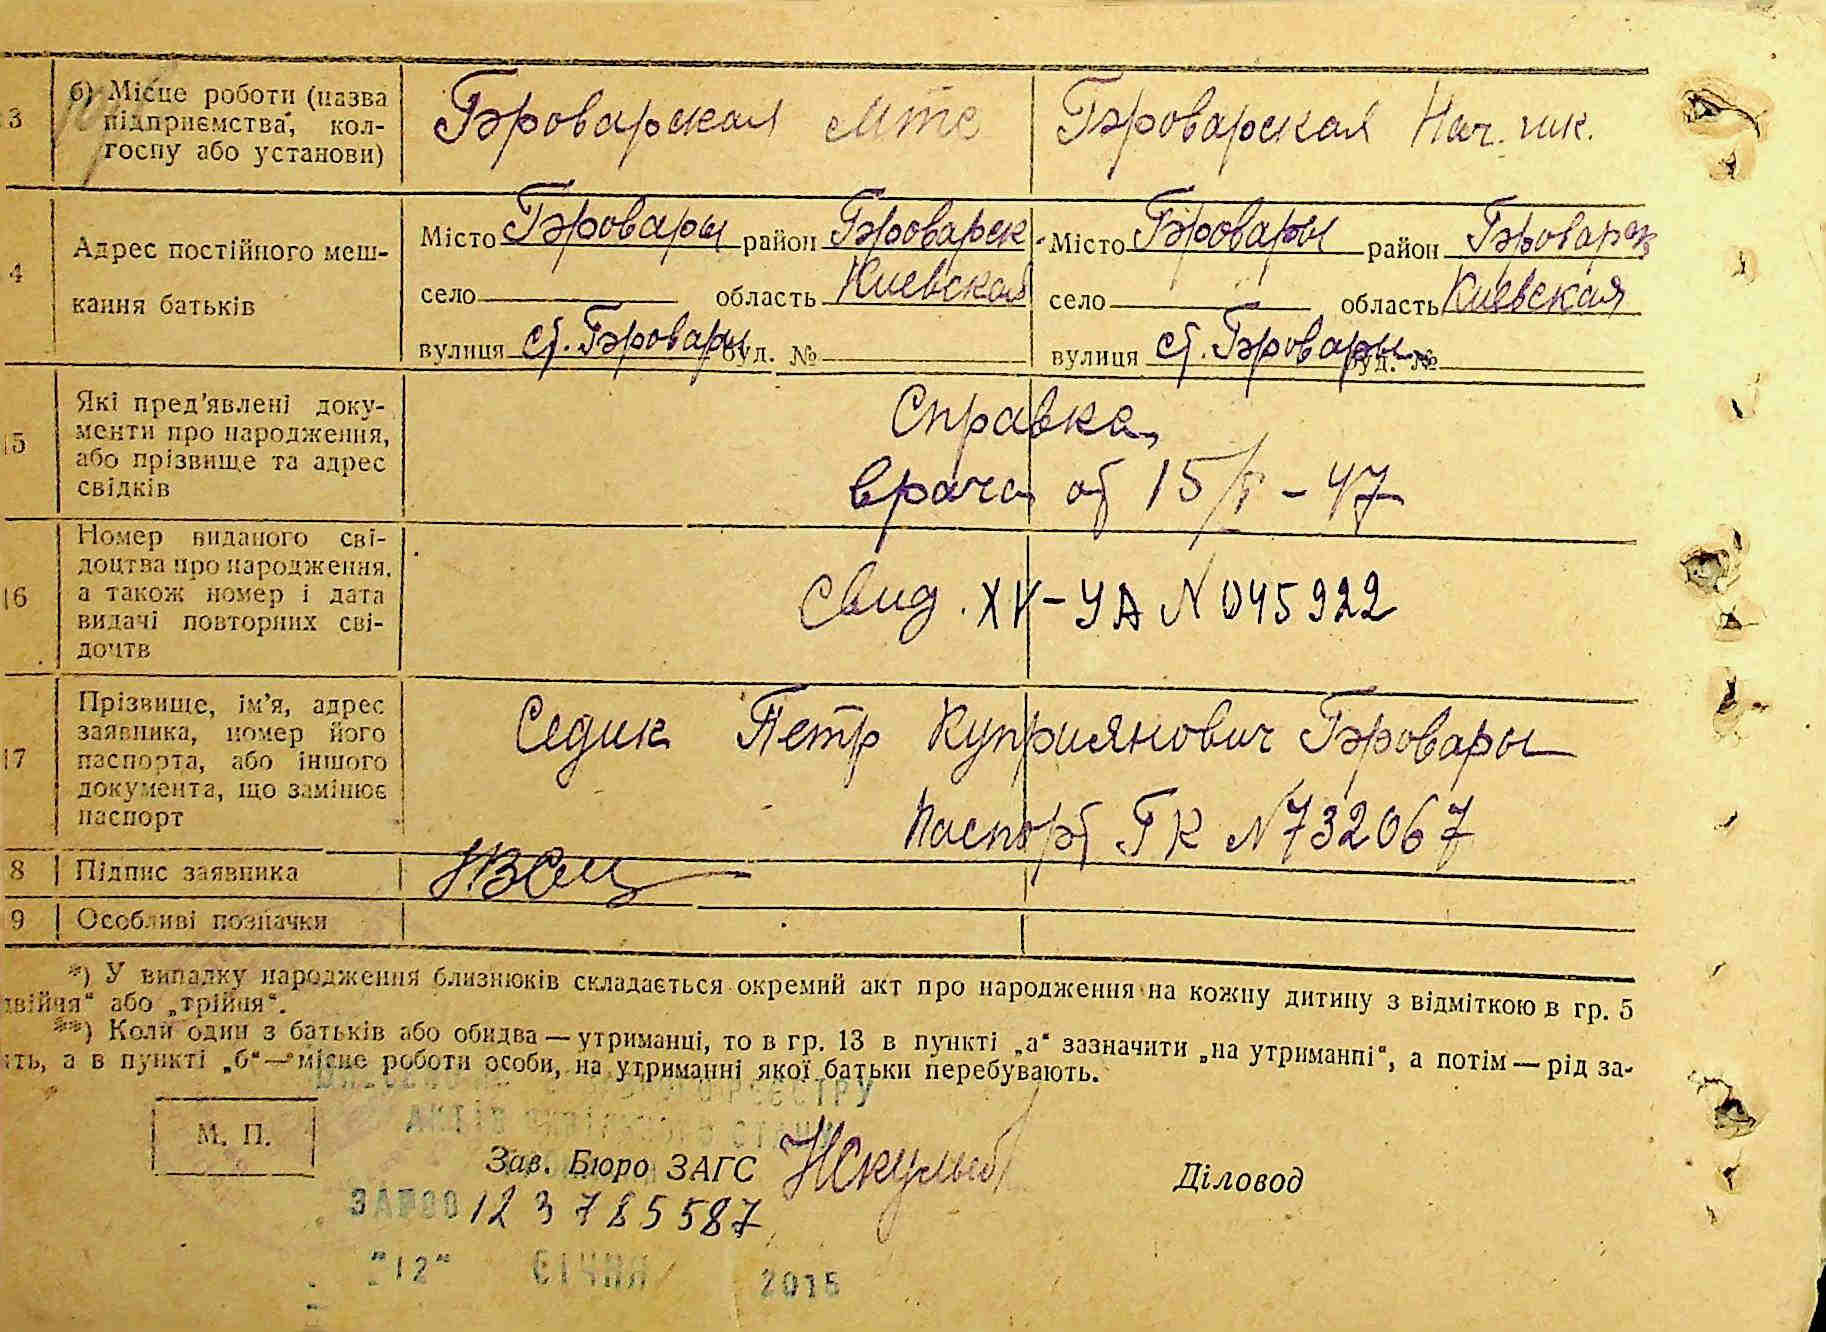 3 б) Місце роботи (назва
підприємства, кол-
госпу або установи)
Броварская мтс
Броварская Нач. шк.
4 Адрес постійного меш-
кання батьків
Місто Бровары район Броварск
село область Киевская
вулиця ст. Бровары буд. №
Місто Бровары район Броварск
село область Киевская
вулиця ст. Бровары буд. №
15 Які пред'явлені доку-
менти про народження,
або прізвище та адрес
свідків
Справка
врача от 15/V - 47
16 Номер виданого сві-
доцтва про народження,
а також номер і дата
видачі повторних сві-
доцтв
Свид. XV-УА N 045922
17 Прізвище, ім'я, адрес
заявника, номер його
паспорта, або іншого
документа, що замінює
паспорт
Седик Петр Куприянович Бровары
Паспорт ГК N 732067
8 Підпис заявника
9 Особливі позначки
*) У випадку народження близнюків складається окремий акт про народження на кожну дитину з відміткою в гр. 5
двійня“ або „трійня“.
**) Коли один з батьків або обидва — утриманці, то в гр. 13 в пункті „а“ зазначити „на утриманні“, а потім — рід за-
ть, а в пункті „б“ — місце роботи особи, на утриманні якої батьки перебувають.
РЕЄСТРУ
АКТІВ ЦИВІЛЬНОГО СТАНУ
М. П.
Зав. Бюро ЗАГС
Діловод
ЗА №00123785587
"12" СІЧНЯ 2015